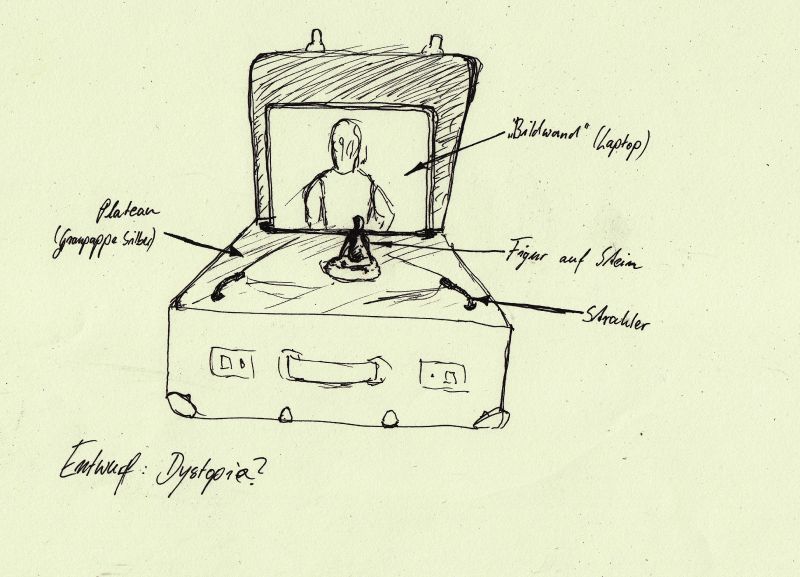 „Bildwand“ (Laptop)
Plateau
(Graupappe Silber)
Figur auf Stein
Strahler
Entwurf: Dystopia?